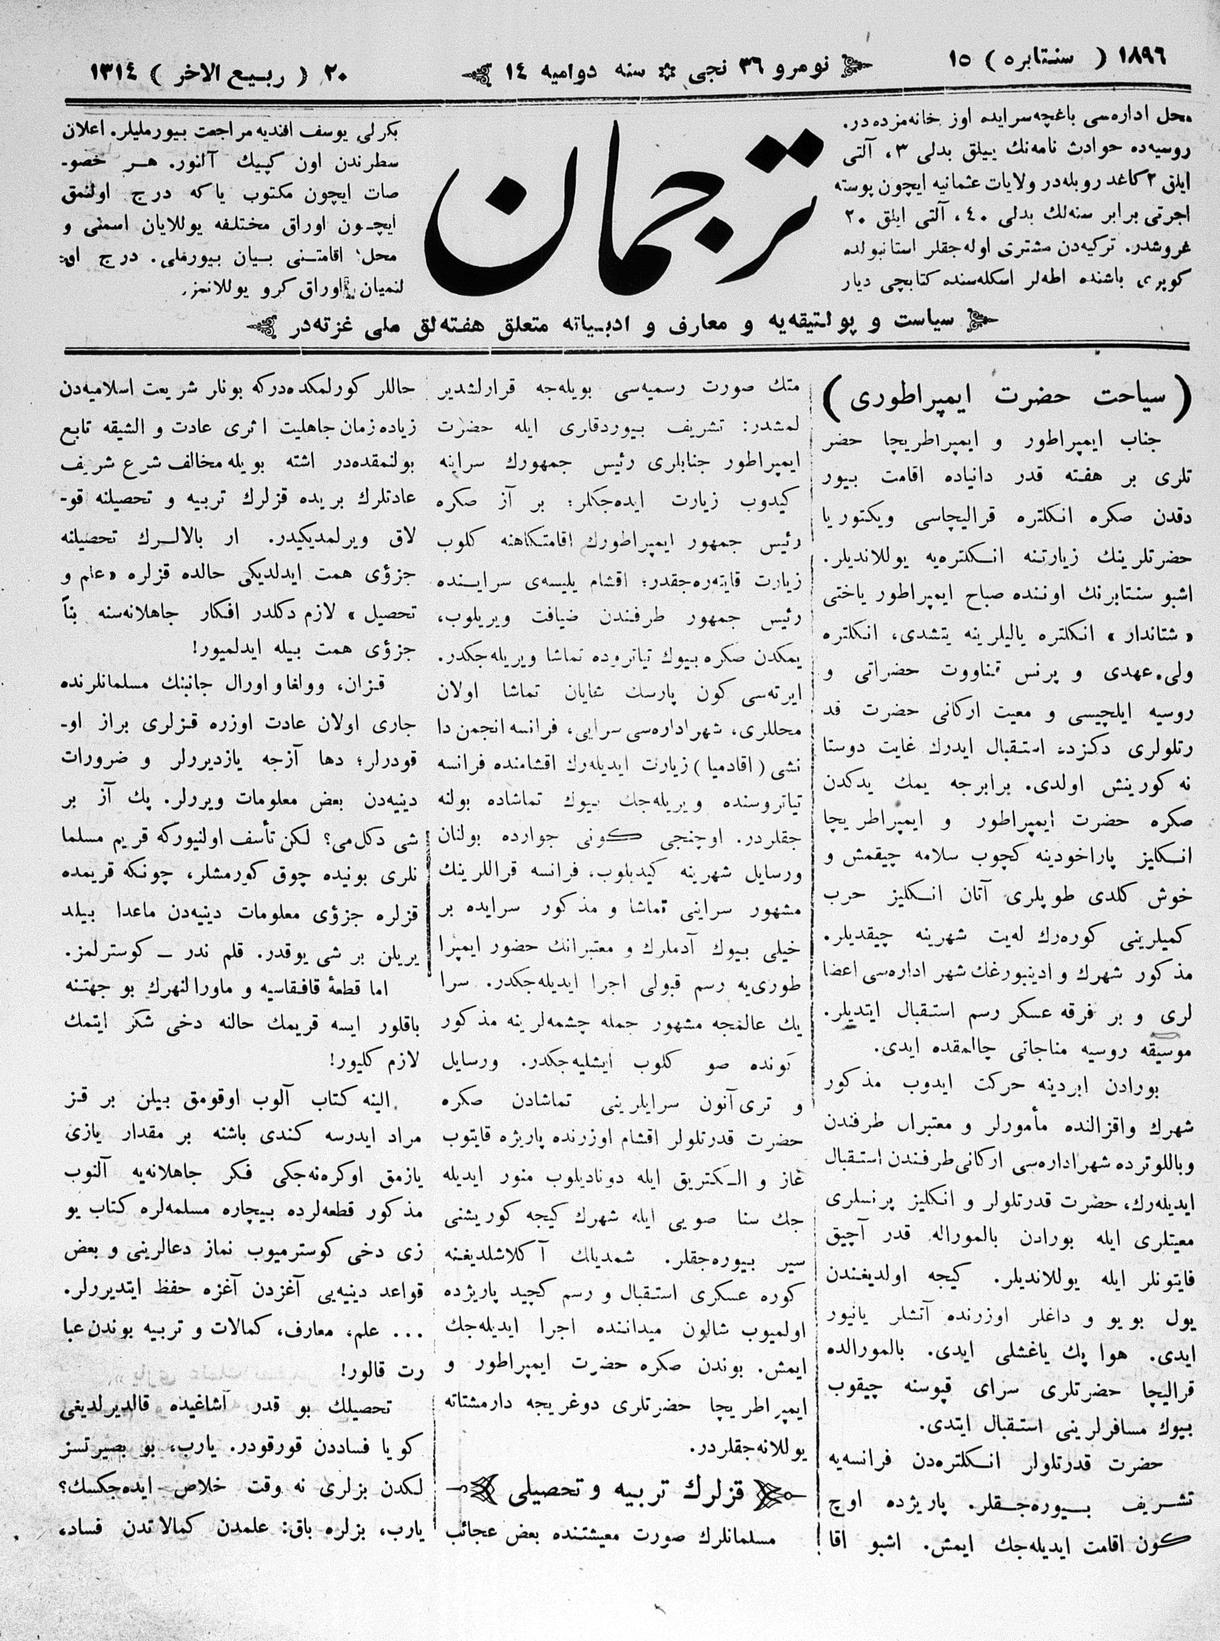 ١٨٩٦ ( سنتابره ) ١٥
نومرو ٣٦ نجی ✽ سنه دوامیه ١٤
٢٠ ( ربیع الاخر ) ١٣١٤
محل اداره‌سی باغچه‌سرایده اوز خانه‌مزده‌در.
روسیه‌ده حوادث نامه‌نك ییللق بدلی ٣، آلتی
ایلق ٢ كاغد روبله‌در ولایات عثمانیه ایچون پوسته
اجرتی برابر سنه‌لك بدلی ٤٠، آلتی ایلق ٢٠
غروشدر. تركیه‌دن مشتری اوله‌جقلر استانبولده
كوپری باشنده اطه‌لر اسكله‌سنده كتابچی دیار
ترجمان
بكرلی یوسف افندیه مراجعت بیورملیلر. اعلان
سطرندن اون كپیك آلنور. هر خصو-
صات ایچون مكتوب یا كه درج اولنمق
ایچون اوراق مختلفه یوللایان اسمنی و
محل اقامتنی بیان بیورملی. درج او
لنمیان اوراق كرو یوللانمز.
سیاست و پولتیقه‌یه و معارف و ادبیاته متعلق هفته‌لق ملی غزته‌در
( سیاحت حضرت ایمپراطوری )
جناب ایمپراطور و ایمپراطریچا حضر
تلری بر هفته قدر دانیاده اقامت بیور
دقدن صكره انكلتره قرالیچاسی ویكتوریا
حضرتلرینك زیارتنه انكلتره‌یه یوللاندیلر.
اشبو سنتابرنك اوننده صباح ایمپراطور یاختی
« شتاندار » انكلتره یالیلرینه یتشدی، انكلتره
ولی‌عهدی و پرنس قناووت حضراتی و
روسیه ایلچیسی و معیت اركانی حضرت قد
رتلولری دكزده استقبال ایدرك غایت دوستا
نه كورینش اولدی. برابرجه یمك یدكدن
صكره حضرت ایمپراطور و ایمپراطریچا
انكلیز پاراخودینه كچوب سلامه چیقمش و
خوش كلدی طوپلری آتان انكلیز حرب
كمیلرینی كوره‌رك له‌یت شهرینه چیقدیلر.
مذكور شهرك و ادینبورغك شهر اداره‌سی اعضا
لری و بر فرقه عسكر رسم استقبال ایتدیلر.
موسیقه روسیه مناجاتی چالمقده ایدی.
بورادن ابردینه حركت ایدوب مذكور
شهرك واقزالنده مأمورلر و معتبران طرفندن
وباللوترده شهر اداره‌سی اركانی طرفندن استقبال
ایدیله‌رك، حضرت قدرتلولر و انكلیز پرنسلری
معیتلری ایله بورادن بالمورالە قدر آچیق
فایتونلر ایله یوللاندیلر. كیجه اولدیغندن
یول بویو و داغلر اوزرنده آتشلر یانیور
ایدی. هوا پك یاغشلی ایدی. بالمورالده
قرالیچا حضرتلری سرای قپوسنه چیقوب
بیوك مسافرلرینی استقبال ایتدی.
حضرت قدرتلولر انكلتره‌دن فرانسه‌یه
تشریف بیوره‌جقلر. پاریژده اوچ
كون اقامت ایدیله‌جك ایمش. اشبو اقا
متك صورت رسمیه‌سی بویله‌جه قرارلشدیر
لمشدر: تشریف بیوردقلری ایله حضرت
ایمپراطور جنابلری رئیس جمهورك سراینه
كیدوب زیارت ایده‌جكلر؛ بر آز صكره
رئیس جمهور ایمپراطورك اقامتكاهنه كلوب
زیارت قایته‌ره‌جقدر؛ اقشام یلیسه‌ی سراینده
رئیس جمهور طرفندن ضیافت ویریلوب،
یمكدن صكره بیوك تیاتروده تماشا ویریله‌جكدر.
ایرته‌سی كون پارسك شایان تماشا اولان
محللری، شهر اداره‌سی سرایی، فرانسه انجمن دا
نشی ( اقادمیا ) زیارت ایدیله‌رك اقشامنده فرانسه
تیاتروسنده ویریله‌جك بیوك تماشاده بولنه
جقلردر. اوچنجی كونی جوارده بولنان
ورسایل شهرینه كیدیلوب، فرانسه قراللرینك
مشهور سراینی تماشا و مذكور سرایده بر
خیلی بیوك آدملرك و معتبرانك حضور ایمپرا
طوری‌یه رسم قبولی اجرا ایدیله‌جكدر. سرا
یك عالمجه مشهور جمله چشمه‌لرینه مذكور
كونده صو كلوب ایشلیه‌جكدر. ورسایل
و تری‌آنون سرایلرینی تماشادن صكره
حضرت قدرتلولر اقشام اوزرنده پاریژه قایتوب
غاز و الكتریق ایله دونادیلوب منور ایدیله
جك سنا صویی ایله شهرك كیجه كوریشنی
سیر بیوره‌جقلر. شمدیلك آكلاشلدیغنه
كوره عسكری استقبال و رسم كچید پاریژده
اولمیوب شالون میداننده اجرا ایدیله‌جك
ایمش. بوندن صكره حضرت ایمپراطور و
ایمپراطریچا حضرتلری دوغریجه دارمشتاته
یوللانه‌جقلردر.
قزلرك تربیه و تحصیلی
مسلمانلرك صورت معیشتنده بعض عجائب
حاللر كورلمكده‌در كه بونلر شریعت اسلامیه‌دن
زیاده زمان جاهلیت اثری عادت و الشیقه تابع
بولنمقده‌در اشته بویله مخالف شرع شریف
عادتلرك بریده قزلرك تربیه و تحصیلنه قو-
لاق ویرلمدیكیدر. ار بالالرك تحصیلنه
جزؤی همت ایدلدیكی حالده قزلره « علم و
تحصیل » لازم دكلدر افكار جاهلانه‌سنه بناً
جزؤی همت بیله ایدلمیور!
قزان، وولغا و اورال جانبنك مسلمانلرنده
جاری اولان عادت اوزره قزلری براز او-
قودرلر؛ دها آزجه یازدیررلر و ضرورات
دینیه‌دن بعض معلومات ویررلر. پك آز بر
شی دكل‌می؟ لكن تأسف اولنیور كه قریم مسلما
نلری بونیده چوق كورمشلر، چونكه قریمده
قزلره جزؤی معلومات دینیه‌دن ماعدا بیلد
یریلن بر شی یوقدر. قلم ندر – كوسترلمز.
اما قطعهٔ قافقاسیه و ماوراالنهرك بو جهتنه
باقلور ایسه قریمك حالنه دخی شكر ایتمك
لازم كلیور!
الینه كتاب آلوب اوقومق بیلن بر قز
مراد ایدرسه كندی باشنه بر مقدار یازی
یازمق اوكره‌نه‌جكی فكر جاهلانه‌یه آلنوب
مذكور قطعه‌لرده بیچاره مسلمه‌لره كتاب یو
زی دخی كوسترمیوب نماز دعالرینی و بعض
قواعد دینیه‌یی آغزدن آغزه حفظ ایتدیررلر.
... علم، معارف، كمالات و تربیه بوندن عبا
رت قالور!
تحصیلك بو قدر آشاغیده قالدیرلدیغی
كویا فساددن قورقودر. یارب، بو بصیرتسز
لكدن بزلری نه وقت خلاص ایده‌جكسك؟
یارب، بزلره باق: علمدن كمالاتدن فساد،